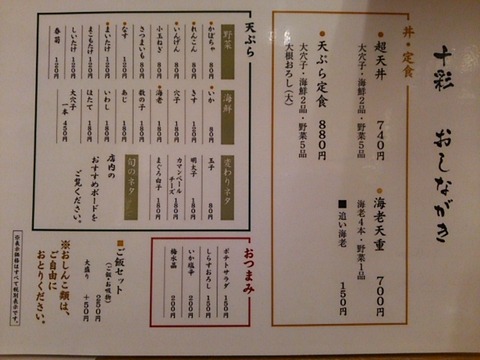 十彩 おしながき
丼・定食
●超天丼 740円
大穴子・海鮮2品・野菜5品
●天ぷら定食 880円
大穴子・海鮮2品・野菜5品
大根おろし(大)
●海老天重 700円
海老4本・野菜1品
■追い海老 150円
天ぷら
野菜
●かぼちゃ 80円
●れんこん 80円
●いんげん 80円
小玉ねぎ 80円
さつまいも 80円
●なす 120円
●まいたけ 120円
まこもたけ 120円
しいたけ 120円
春菊 120円
海鮮
●いか 80円
きす 120円
穴子 180円
●海老 180円
数の子 180円
あじ 180円
いわし 180円
ほたて 180円
大穴子 一本 450円
変わりネタ
玉子 80円
明太子 180円
カマンベールチーズ 180円
まぐろ白子 180円
旬のネタ
店内の
おすすめボードを
ご覧ください。
おつまみ
ポテトサラダ 150円
しらすおろし 150円
いか塩辛 200円
梅水晶 200円
■ご飯セット 250円
(ご飯・お吸物)
大盛り +50円
※おしんこ類は、
ご自由に
おとりください。
※表示価格はすべて税別表示です。